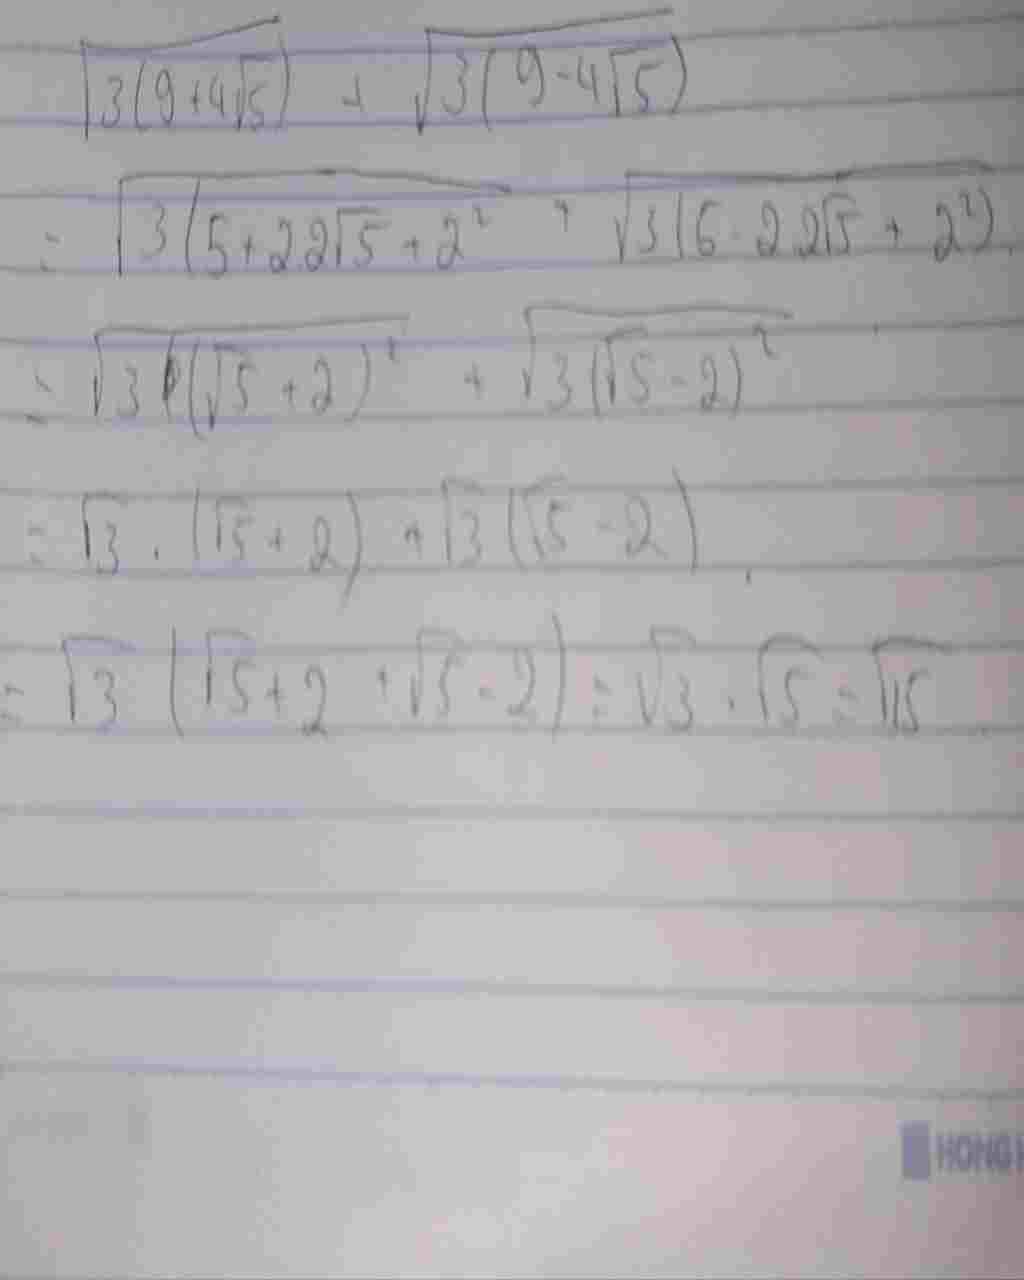 √3(9+4√5) + √3(9-4√5)
= √3(5+2.2√5+2² + √3(5-2.2√5+2²)
= √3((√5+2)² + √3(√5-2)²
= √3.(√5+2)+√3(√5-2)
= √3(√5+2+√5-2)=√3.√5=√15
HONG H